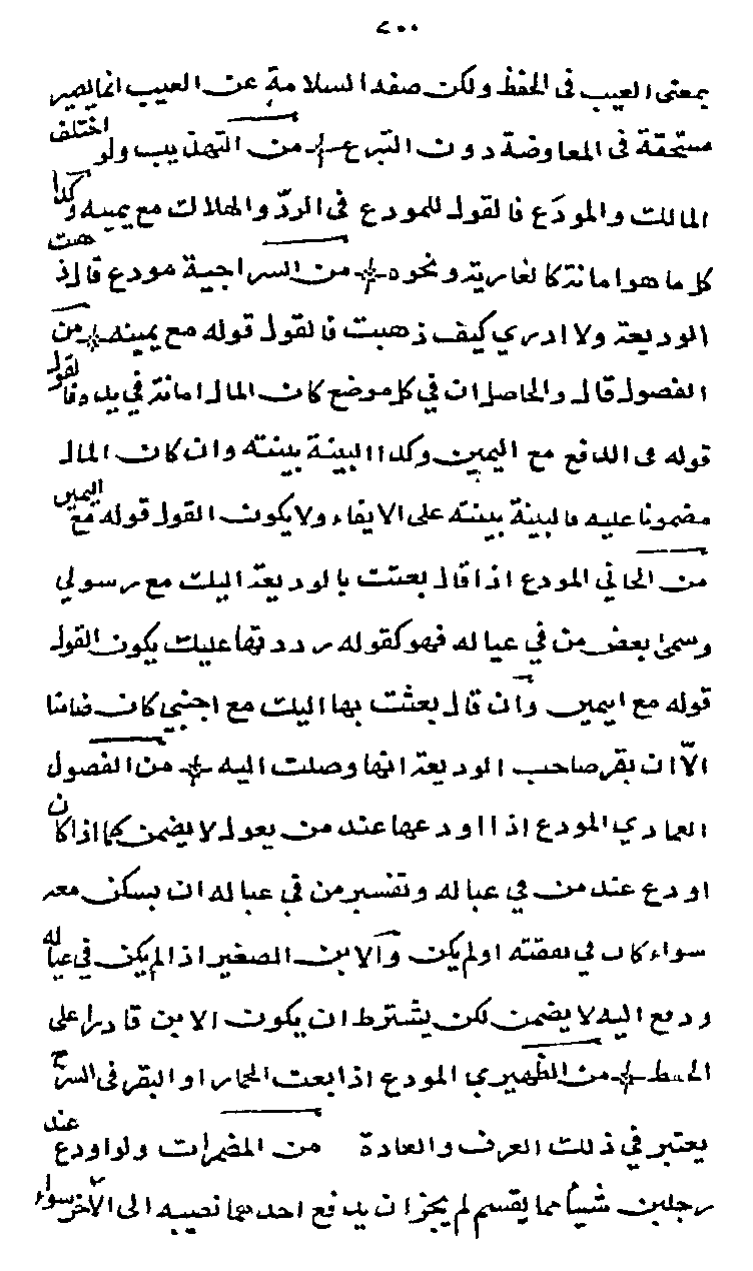 ٢٠٠
بمعنى العيب في الحفظ ولكن صفة السلامة عن العيب انما يصير
مستحقة في المعاوضة دون التبرع من التهذيب ولو اختلف
المالك والمودَع فالقول للمودع في الردّ والهلاك مع يمينه وكذا
كل ما هو امانة كالعارية ونحوه من السراجية مودع قال ذهبت
الوديعة ولا ادري كيف ذهبت فالقول قوله مع يمينه من
الفصول قال والحاصل ان في كل موضع كان المال امانة في يده فالقول
قوله في الدفع مع اليمين وكذا البينة بينته وان كان المال
مضمونا عليه فالبينة بينته على الايفاء ولا يكون القول قوله مع اليمين
من الخاني المودع اذا قال بعثت بالوديعة اليك مع رسولي
وسمى بعض من في عياله فهو كقوله رددتها عليك يكون القول
قوله مع ايمين وان قال بعثت بها اليك مع اجنبي كان ضامنا
الّا ان يقر صاحب الوديعة انها وصلت اليه من الفصول
العمادي المودع اذا اودعها عند من يعول لا يضمن كما اذا كان
اودع عند من في عياله وتفسير من في عياله ان يسكن معه
سواء كان في نفقته او لم يكن والابن الصغير اذا لم يكن في عياله
ودفع اليه لا يضمن لكن يشترط ان يكون الابن قادرا على
الحفظ من الظهيري المودع اذا بعث الحمار او البقر في السرح
يعتبر في ذلك العرف والعادة من المضمرات ولو اودع عند
رجلين شيئا مما يقسم لم يجز ان يدفع احدهما نصيبه الى الآخر سواء